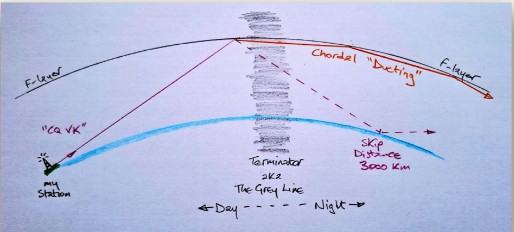 F-layer
Chordal "Ducting"
F-layer
"CQ VK"
my
Station
Terminator
aka
The Grey Line
Skip
Distance
3000 Km
← Day - - - - - - Night - - →